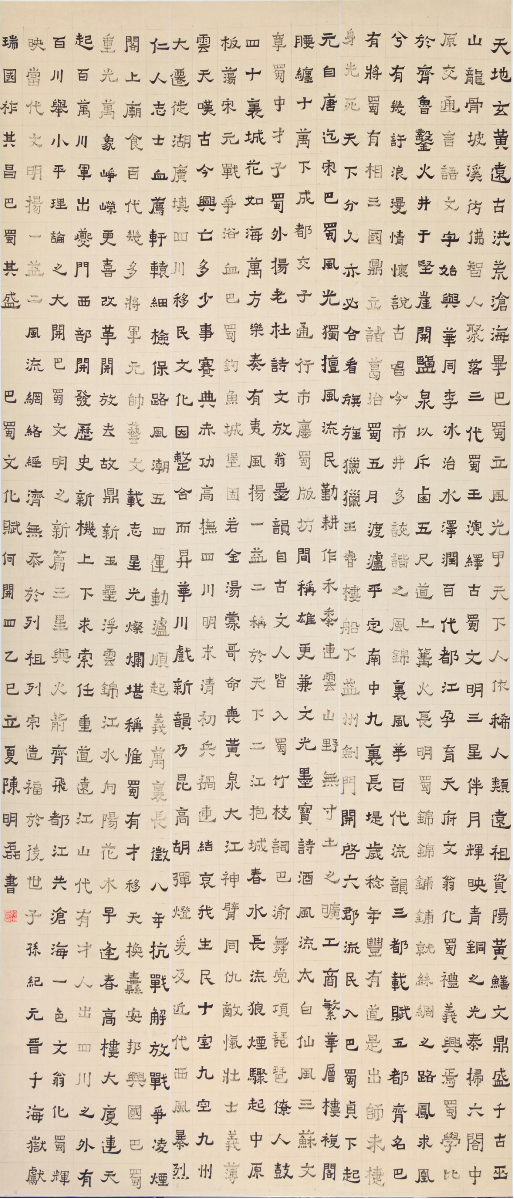 天地玄黃遠古洪荒滄海畢巴蜀立風光甲天下人依稀人類遠祖資陽黃鱔文鼎盛于古巫
山龍骨坡溪彷彿智人聚落三代蜀王演繹古蜀文明三星伴月輝映青銅之光秦掃六閤中
原交通言語文字始興華同李冰治水澤潤百代都江孕育天府文翁化蜀禮義興焉蜀學比
於齊魯鑿火井于堅崖開鹽泉以斥鹵五尺道上篝火長明蜀錦錦鋪鋪就絲綢之路鳳求凰
兮有幾許浪漫情懷說古唱今市井多詼諧之風錦裏風箏百代流韻三都載賦五都齊名巴
有將蜀有相三國鼎立諸葛治蜀五月渡瀘平定南中九裏長堤歲稔年豐有道是出師未捷
身先死天下分久亦必合看旗旌獵獵王睿樓船下益州劍門開啓六郡流民入巴蜀貞下起
元自唐迄宋巴蜀風光獨擅風流民勤耕作禾黍連雲山野無寸土之曠工商繁華層樓複閣
腰纏十萬下成都交子通行市廛蜀版坊間稱雄更兼文光墨寶詩酒風流太白仙風三蘇文
章蜀中才子蜀外揚老杜詩文放翁墨韻自古文人皆入蜀竹枝詞巴渝舞党項琵琶僚人鼓
四十裏城花如海萬方樂奏有夷風揚一益二稱於天下二江抱城春水長流狼煙驟起中原
板蕩宋元戰爭浴血巴蜀釣魚城堡固若金湯蒙哥命喪黃泉大江神臂同仇敵愾壯士義薄
雲天嘆古今興亡多少事賽典赤功高撫四川明末清初兵禍連結哀我生民十室九空九州
大遷徙湖廣填四川移民文化因整合而昇華川戲新韻乃昆高胡彈燈爰及近代西風暴烈
仁人志士血薦軒轅細檢保路風潮五四運動瀘順起義萬裏長徵八年抗戰解放戰爭凌煙
閣上廟食百代幾多將軍元帥藝文載志星光燦爛堪稱惟蜀有才移天換轟安邦興國巴蜀
重光萬象崢嶸更喜改革開放去故鼎新玉壘浮雲錦江水向陽花水早逢春高樓大廈連天
起百萬川軍出夔門西部開發歷史新機上下求索任重道遠江山代有才人出四川之外有
百川舉小平理論之大開巴蜀文明之新篇三星與火箭齊飛都江共滄海一色文翁化蜀輝
映當代文明揚一益二風流網絡經濟無忝於列祖列宗造福於後世子孫紀元晉千海嶽獻
瑞國祚其昌巴蜀其盛 巴蜀文化賦何開四乙巳立夏陳明磊書